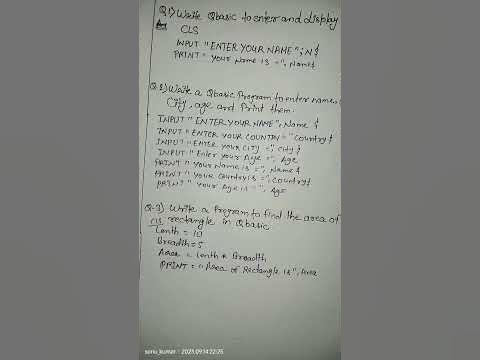 Q.1) Write Qbasic to enter and display
CLS
INPUT "ENTER YOUR NAME"; N$
PRINT "Your Name is ="; Name$
Q.2) Write a Qbasic Program to enter name,
City, age and Print them.
INPUT "ENTER YOUR NAME"; Name $
INPUT "ENTER YOUR COUNTRY =" Country$
INPUT "ENTER YOUR CITY ="; City $
INPUT "Enter your Age ="; Age
PRINT "Your Name is ="; Name $
PRINT "Your Country is ="; Country$
PRINT "Your Age is ="; Age
Q-3) Write a Program to find the area of
CLS rectangle in Qbasic
Lenth = 10
Breadth = 5
Area = Lenth * Breadth
PRINT = "Area of Rectangle is", Area
sonu_kumar - 2023.09.14 22:25